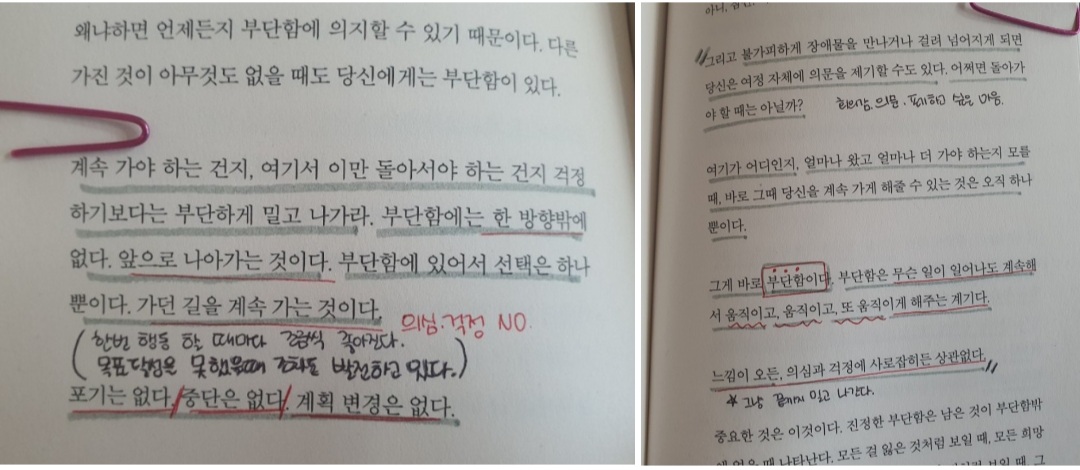 왜냐하면 언제든지 부단함에 의지할 수 있기 때문이다. 다른
가진 것이 아무것도 없을 때도 당신에게는 부단함이 있다.
계속 가야 하는 건지, 여기서 이만 돌아서야 하는 건지 걱정
하기보다는 부단하게 밀고 나가라. 부단함에는 한 방향밖에
없다. 앞으로 나아가는 것이다. 부단함에 있어서 선택은 하나
뿐이다. 가던 길을 계속 가는 것이다.
의심.걱정 NO.
(한번 행동 할 때마다 조금씩 좋아진다.
목표달성을 못했을때 조차도 발전하고 있다.)
포기는 없다. 중단은 없다. 계획 변경은 없다.
그리고 불가피하게 장애물을 만나거나 걸려 넘어지게 되면
당신은 여정 자체에 의문을 제기할 수도 있다. 어쩌면 돌아가
야 할 때는 아닐까?
의문. 포기하고 싶은 마음.
여기가 어디인지, 얼마나 왔고 얼마나 더 가야 하는지 모를
때, 바로 그때 당신을 계속 가게 해줄 수 있는 것은 오직 하나
뿐이다.
그게 바로 부단함이다. 부단함은 무슨 일이 일어나도 계속해
서 움직이고, 움직이고, 또 움직이게 해주는 계기다.
느낌이 오든, 의심과 걱정에 사로잡히든 상관없다.
* 그냥 끝까지 밀고 나간다.
중요한 것은 이것이다. 진정한 부단함은 남은 것이 부단함밖
에 없을 때 나타난다. 모든 걸 잃은 것처럼 보일 때, 모든 희망